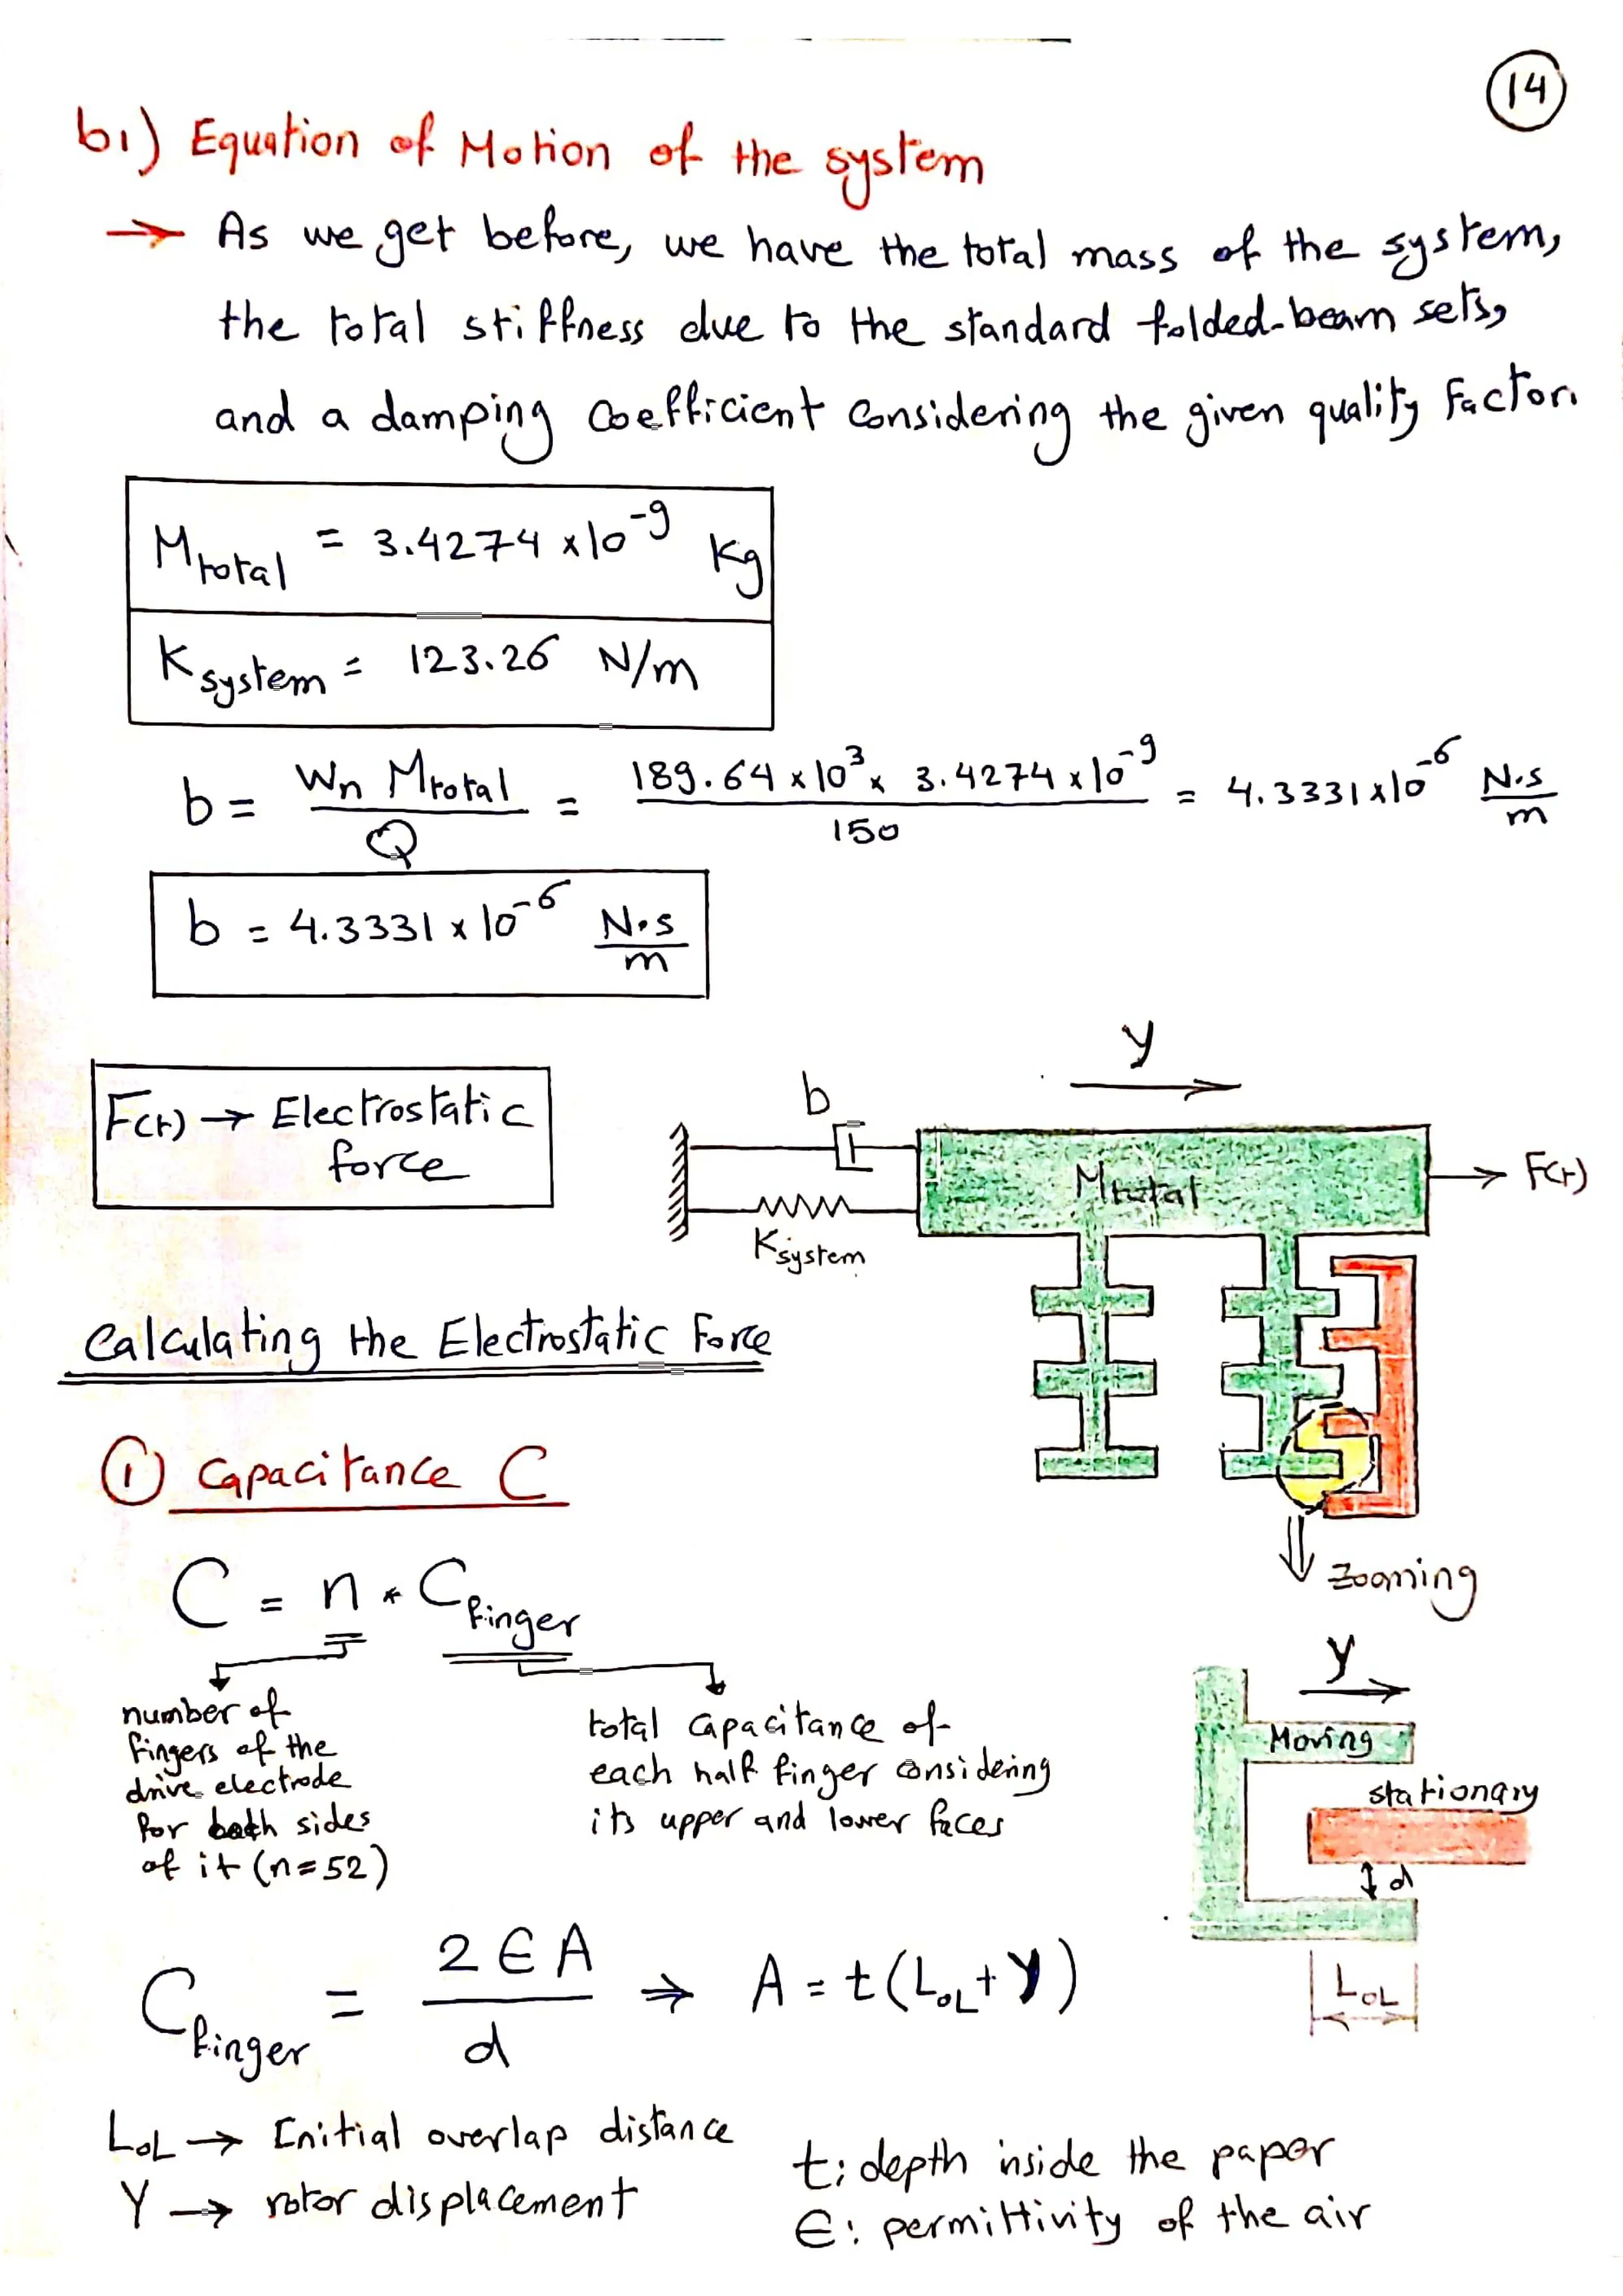 14
b1) Equation of Motion of the system
→ As we get before, we have the total mass of the system,
the total stiffness due to the standard folded-beam sets,
and a damping Coefficient Considering the given quality Factor.
M_total = 3.4274 x 10^-9 Kg
K_system = 123.26 N/m
b = (Wn M_total) / Q = (189.64 x 10^3 x 3.4274 x 10^-9) / 150 = 4.3331 x 10^-6 N.s/m
b = 4.3331 x 10^-6 N.s/m
F(t) → Electrostatic
force
y
b
M total
F(t)
K_system
Calculating the Electrostatic Force
① Capacitance C
Zooming
C = n * C_finger
number of
fingers of the
drive electrode
for both sides
of it (n=52)
total Capacitance of
each half finger Considering
its upper and lower faces
y
Moving
stationary
d
L_OL
C_finger = 2 ∈ A / d ⇒ A = t (L_OL + y)
L_OL → Initial overlap distance
Y → rotor displacement
t: depth inside the paper
∈: permittivity of the air